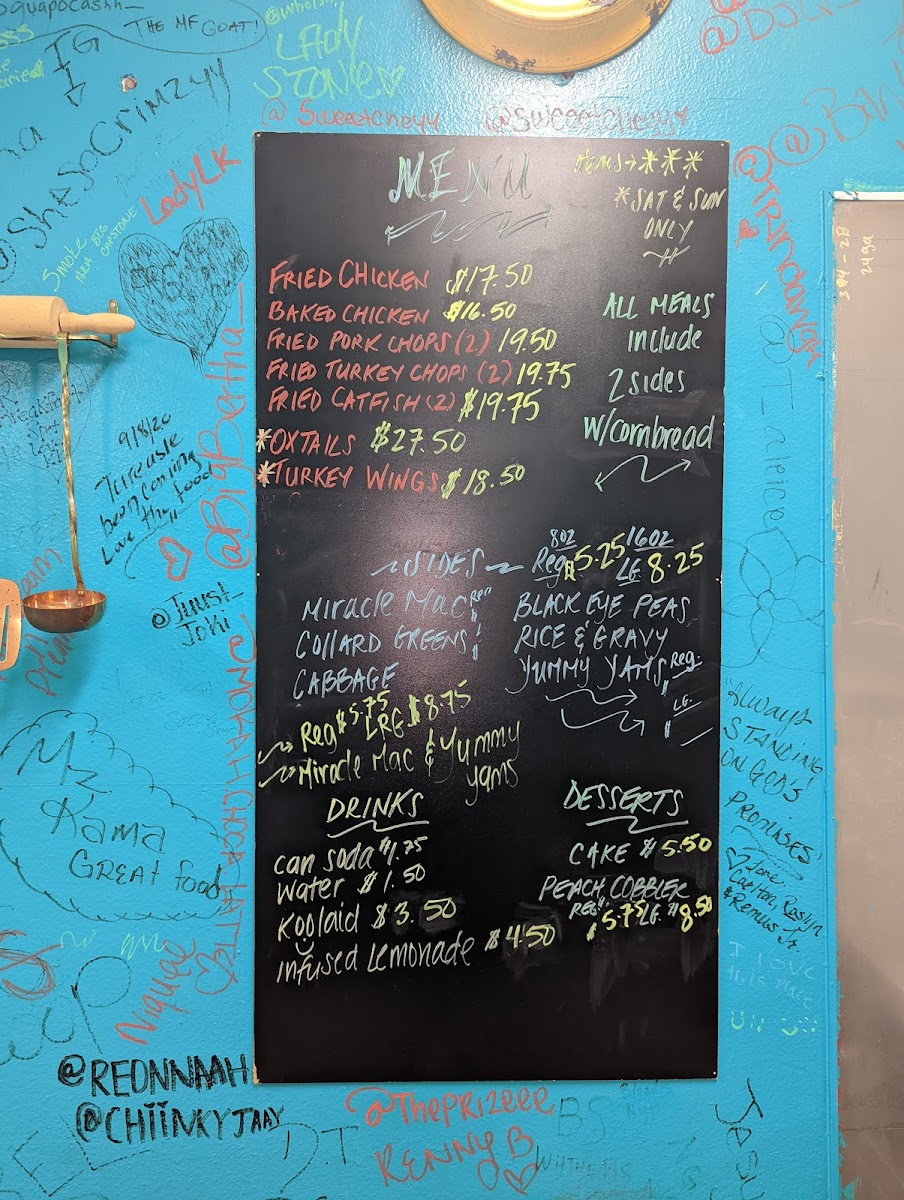 THE MF GOAT!
IG
LADY
STONE
@SheSoCrimzyy
@Sweeetcheyy
@Sweeetcheyy
LadyLK
MENU
items→***
*SAT & SUN
ONLY
FRIED CHICKEN $17.50
BAKED CHICKEN $16.50
FRIED PORK CHOPS (2) 19.50
FRIED TURKEY CHOPS (2) 19.75
FRIED CATFISH (2) $19.75
*OXTAILS $27.50
*TURKEY WINGS $18.50
ALL MEALS
include
2 sides
W/cornbread
SIDES
8oz 16oz
Reg $5.25 LG 8.25
Miracle Mac Reg
COLLARD GREENS
CABBAGE
BLACK EYE PEAS
RICE & GRAVY
YUMMY YAMS Reg
LG
Reg $5.75 LRG $8.75
Miracle Mac & Yummy
yams
DRINKS
can soda $1.75
water $1.50
Koolaid $3.50
infused Lemonade $4.50
DESSERTS
CAKE $5.50
PEACH COBBLER
REG $5.75 LG $8.50
@BigBertha_
9/8/20
been coming
Love the food
@Juust_
Joki
Mz
Kama
GREAT food
Niquee
@REDNNAAH
@CHIINKYJAAY
"Always
STANDING
ON GOD'S
PROMISES"
Love,
I love
this place
@ThePRIZEEE
KENNY B
D.T
BS